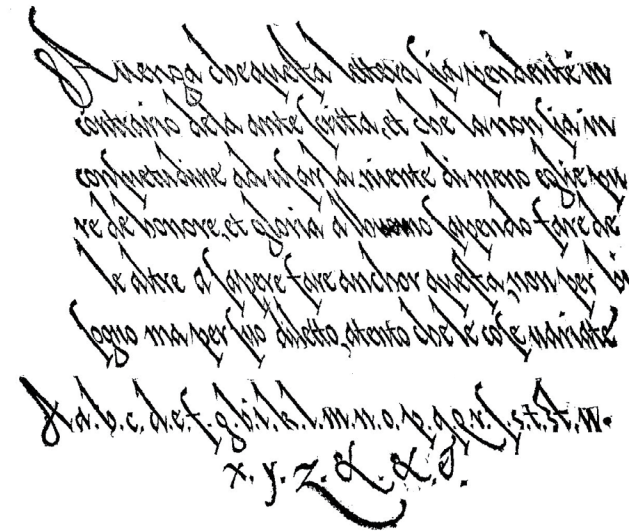 A menga che questa lettera sia pendente in
contrario dela ante scritta, et che la non sia in
consuetudine da usarla, niente di meno egli e pu
re de honore, et gloria a l huomo sapendo fare de
le altre a sapere fare anchor questa, non per bi
sogno ma per suo diletto, atento che le cose uariate
A.a.b.c.d.e.f.g.h.i.k.l.m.n.o.p.q.r.ſ.s.t.st.u.
x.y.z.&.&.